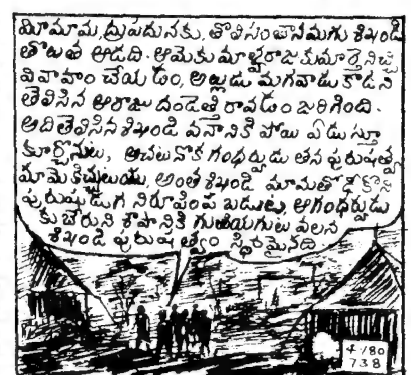 మామామ, ద్రుపదునకు, తొలిసంతానమగు శిఖండి
తొలుత ఆడది. ఆమెకు మాళ్వరాజు కుమార్తెనిచ్చి
వివాహం చేయడం, అల్లుడు మగవాడు కాడని
తెలిసిన ఆరాజు దండెత్తి రావడం జరిగింది.
అది తెలిసిన శిఖండి వనానికి పోయి ఏడుస్తూ
కూర్చొనుట, అచటనొక గంధర్వుడు తన పురుషత్వ
మామెకిచ్చుటయు, అంత శిఖండి మామతో
పురుషుడుగ నిరూపింప బడుట, ఆగంధర్వుడు
కుబేరుని శాపానికి గురియగుట వలన
శిఖండి పురుషత్వం స్థిరమైనది.
4-180
738